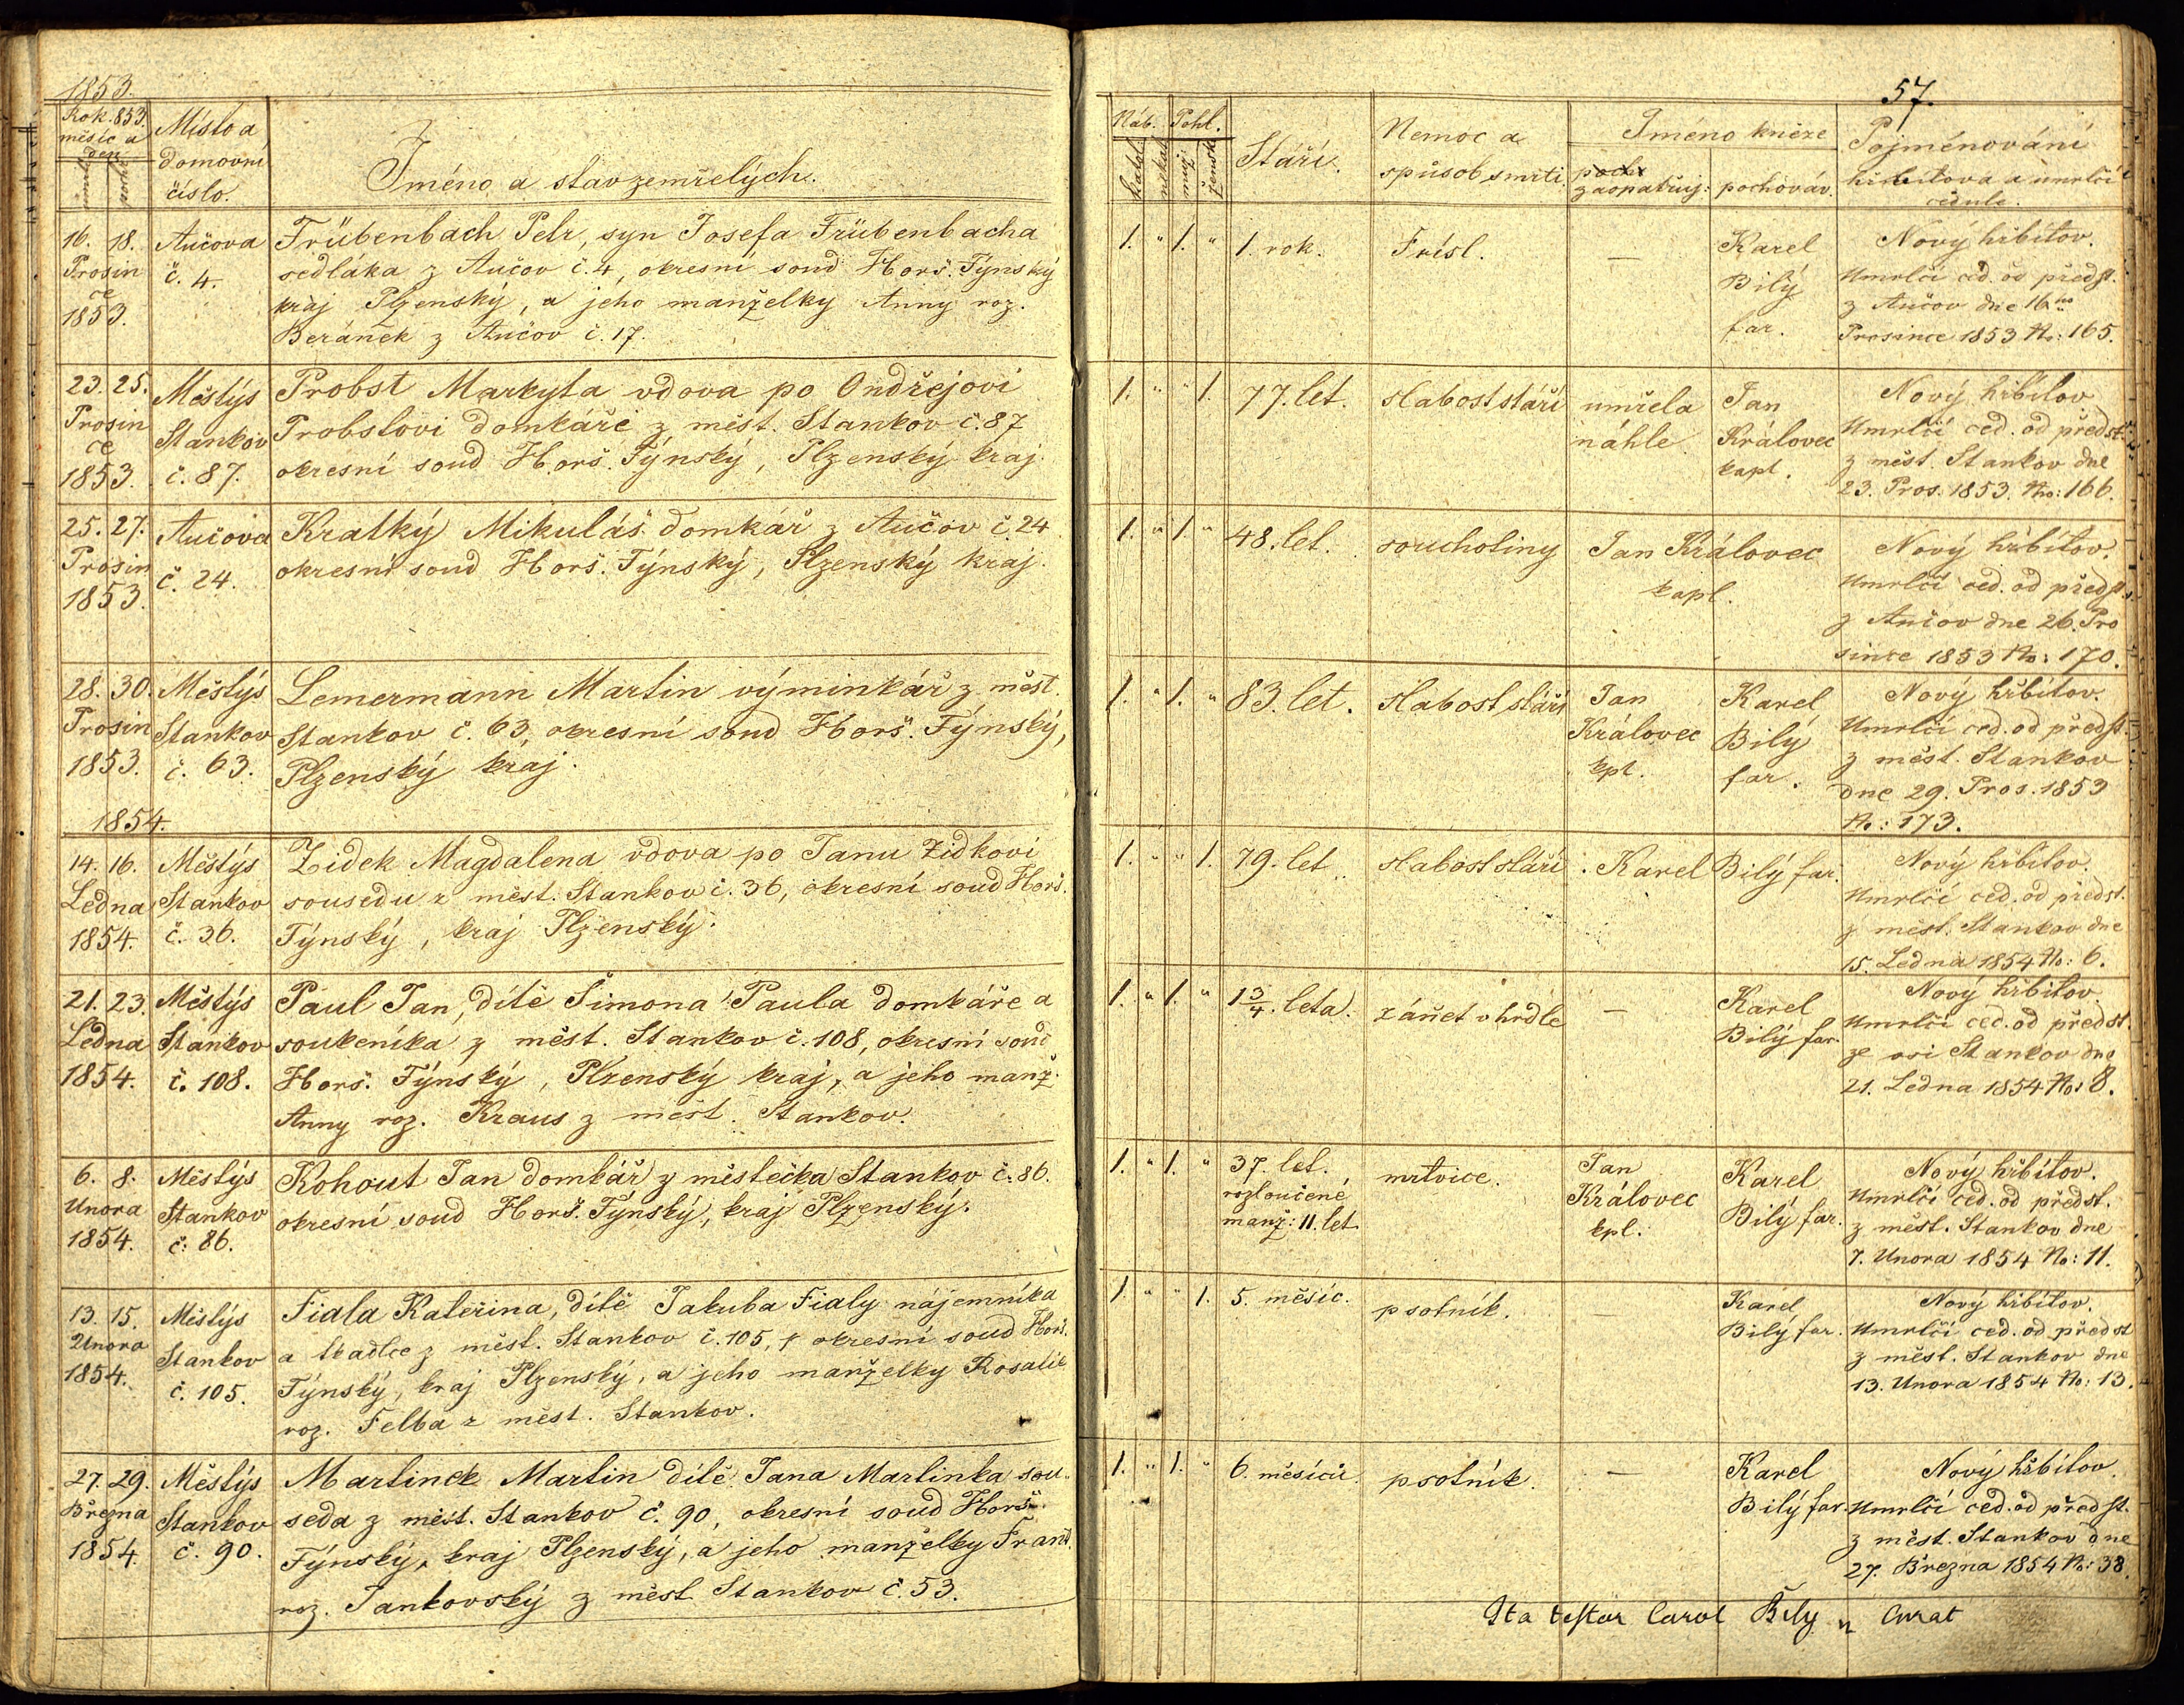 1853.
Rok. 853.
měsíc a
den
Místo a
domovní
číslo.
Jméno a stav zemřelých.
16. 18.
Prosin
ce
1853.
Aučova
č. 4.
Trübenbach Petr, syn Josefa Trübenbacha
sedláka z Aučov č. 4, okresní soud Horš. Týnský
kraj Plzenský, a jého manželky Anny roz.
Beránek z Aučov č. 17.
23. 25.
Prosin
ce
1853.
Městýs
Stankov
č. 87.
Probst Markyta vdova po Ondřejovi
Probstovi domkáři z měst. Stankov č. 87
okresní soud Horš. Týnský, Plzenský kraj.
25. 27.
Prosin
1853.
Aučova
č. 24.
Kratký Mikuláš domkář z Aučov č. 24
okresní soud Horš. Týnský, Plzenský kraj.
28. 30.
Prosin
1853.
Městýs
Stankov
č. 63.
Lemermann Martin výminkář z měst.
Stankov č. 63, okresní soud Horš. Týnský,
Plzenský kraj.
1854.
14. 16.
Ledna
1854.
Městýs
Stankov
č. 36.
Židek Magdalena vdova po Janu Židkovi
sousedu z měst. Stankov č. 36, okresní soud Horš.
Týnský, kraj Plzenský.
21. 23.
Ledna
1854.
Městýs
Stankov
č. 108.
Paul Jan, dítě Šimona Paula domkáře a
soukeníka z měst. Stankov č. 108, okresní soud
Horš. Týnský, Plzenský kraj, a jeho manž.
Anny roz. Kraus z měst. Stankov.
6. 8.
Unora
1854.
Městýs
Stankov
č. 86.
Kohout Jan domkář z městečka Stankov č. 86.
okresní soud Horš. Týnský, kraj Plzenský.
13. 15.
Unora
1854.
Městýs
Stankov
č. 105.
Fiala Kateřina, dítě Jakuba Fialy nájemníka
a tkadlce z měst. Stankov č. 105, okresní soud Horš.
Týnský, kraj Plzenský, a jeho manželky Rosalie
roz. Felba z měst. Stankov.
27. 29.
Března
1854.
Městýs
Stankov
č. 90.
Martinek Martin dítě Jana Martinka sou-
seda z měst. Stankov č. 90, okresní soud Horš.
Týnský, kraj Plzenský, a jeho manželky Frant.
roz. Jankovský z měst. Stankov č. 53.
57.
Náb. Pohl.
katol.
nekat.
muž.
žensk.
Stáří.
Nemoc a
spůsob smrti.
Jméno kněze
zaopatřuj: pochováv.
Pojménování
hřbitova a umrlčí
cedule.
1. " 1. " 1. rok. Frísl. —
Karel
Bilý
far.
Nový hřbitov.
Umrlčí ced. od předst.
z Aučov dne 16ho
Prosince 1853 No: 165.
1. " " 1. 77. let. slabost stáří
umřela
náhle
Jan
Královec
kapl.
Nový hřbitov
Umrlčí ced. od předst.
z měst. Stankov dne
23. Pros. 1853. No: 166.
1. " 1. " 48. let. souchotiny
Jan Královec
kapl.
Nový hřbitov.
Umrlčí ced. od předst.
z Aučov dne 26. Pro
since 1853 No: 170.
1. " 1. " 83. let. slabost stáří
Jan
Královec
kpl.
Karel
Bilý
far.
Nový hřbitov.
Umrlčí ced. od předst.
z měst. Stankov
dne 29. Pros. 1853
No: 173.
1. " " 1. 79. let. slabost stáří Karel Bilý far.
Nový hřbitov.
Umrlčí ced. od předst.
z měst. Stankov dne
15. Ledna 1854 No: 6.
1. " 1. " 1 3/4. leta. zánět v hrdle —
Karel
Bilý far.
Nový hřbitov.
Umrlčí ced. od předst.
ze vsi Stankov dne
21. Ledna 1854 No: 8.
1. " 1. " 37. let.
rozloučené
manž: 11. let
mrtvice.
Jan
Královec
kpl.
Karel
Bilý far.
Nový hřbitov.
Umrlčí ced. od předst.
z měst. Stankov dne
7. Unora 1854 No: 11.
1. " " 1. 5. měsíc. psotník. —
Karel
Bilý far.
Nový hřbitov.
Umrlčí ced. od předst
z měst. Stankov dne
13. Unora 1854 No: 13.
1. " 1. " 6. měsíců. psotník. —
Karel
Bilý far.
Nový hřbitov.
Umrlčí ced. od předst.
z měst. Stankov dne
27. Března 1854 No: 38.
Ita testor Carol Bily Curat